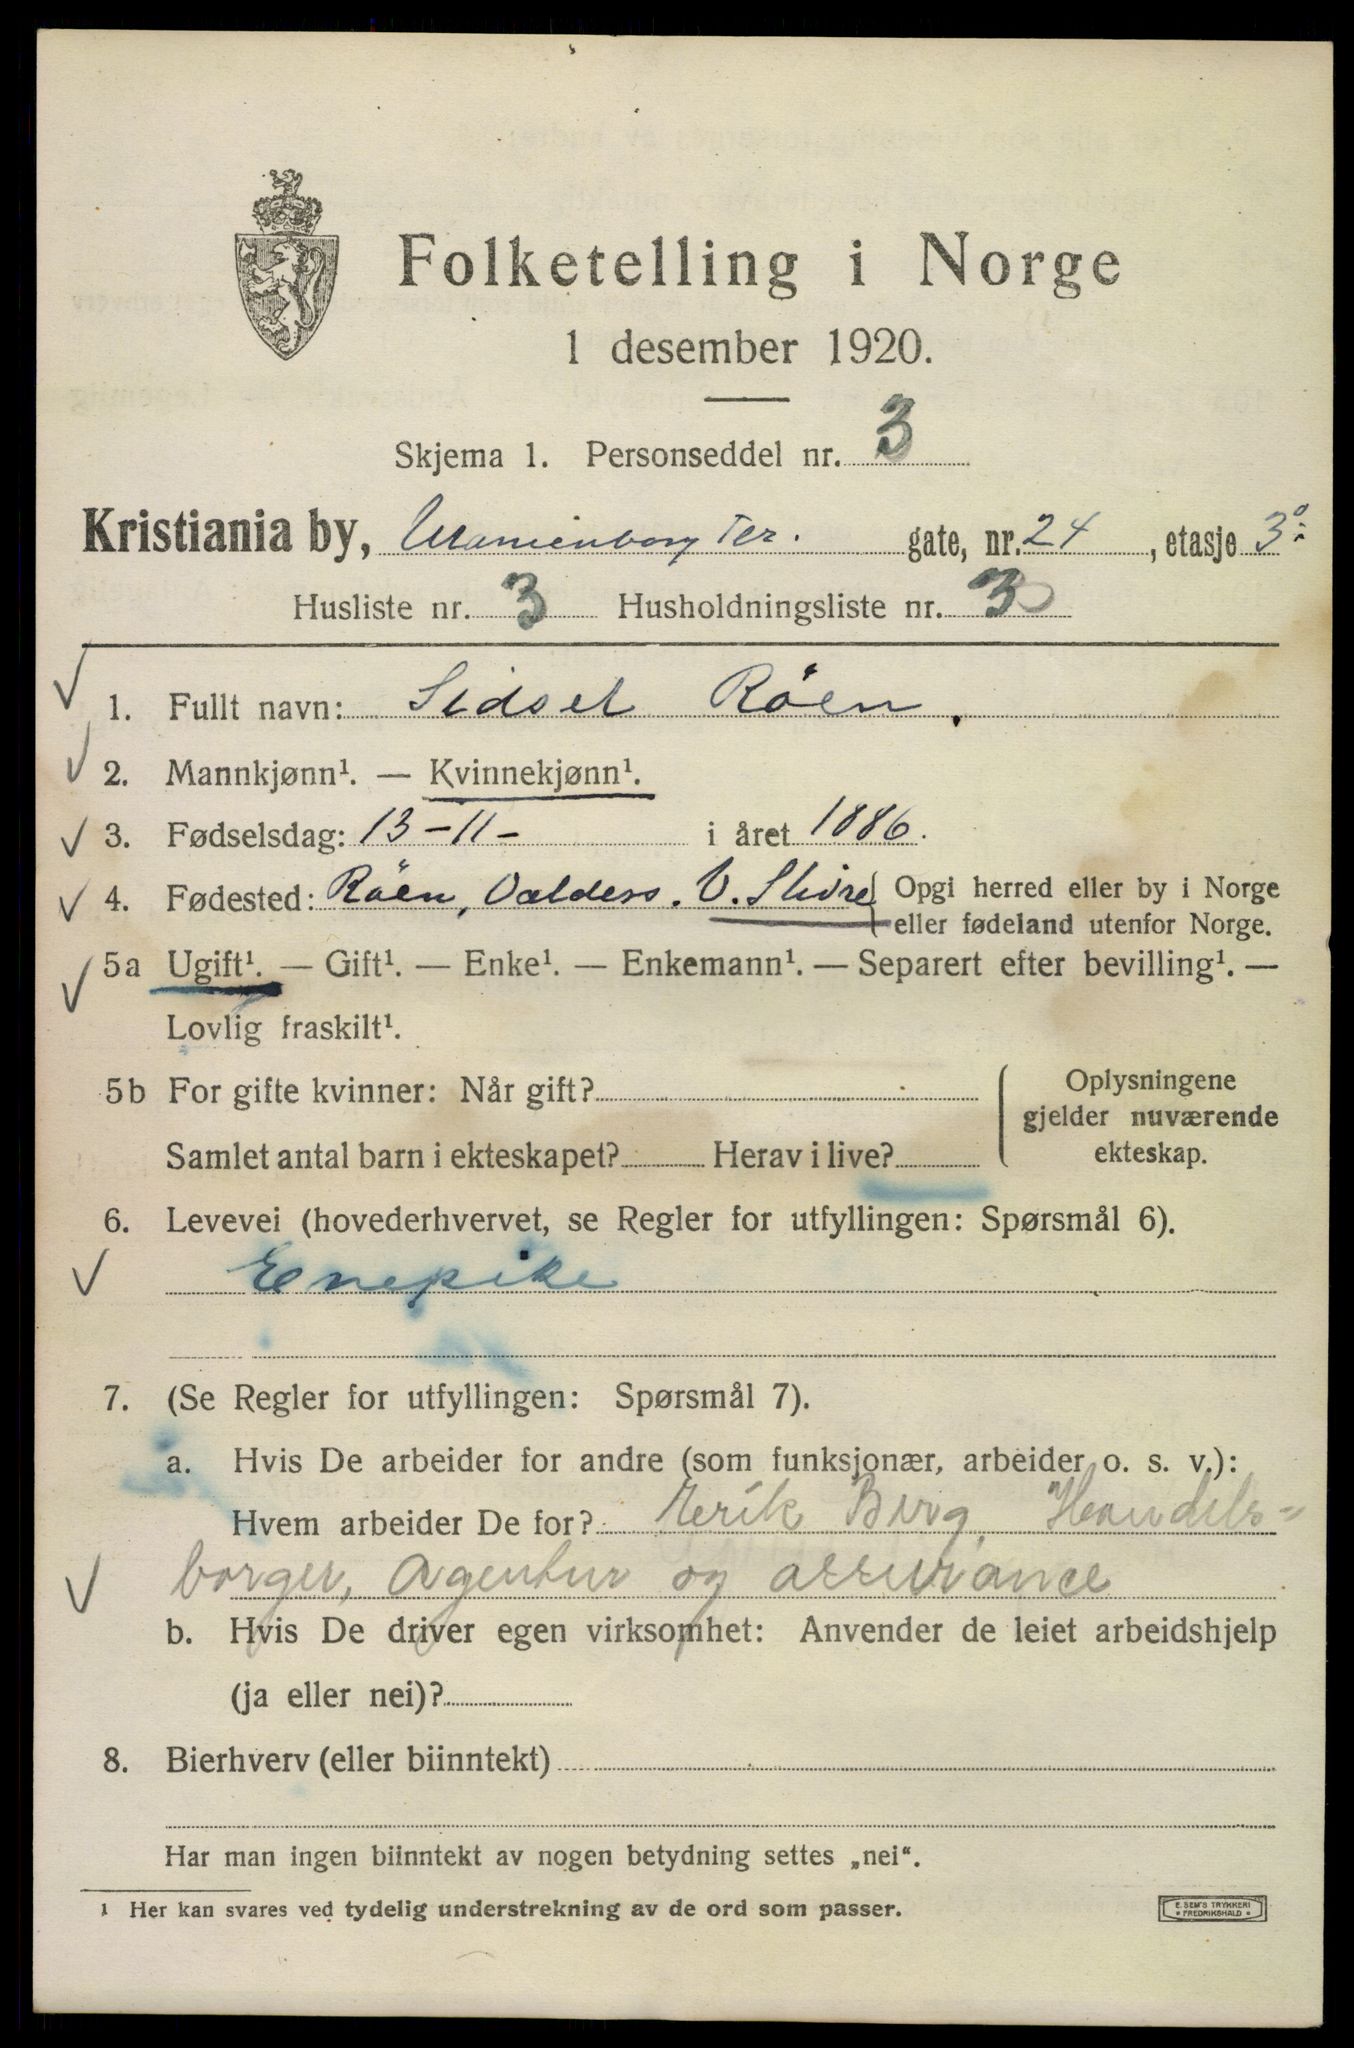 Folketelling i Norge
1 desember 1920.
Skjema 1. Personseddel nr. 3
Kristiania by, Uranienborg Ter. gate, nr. 24, etasje 3
Husliste nr. 3 Husholdningsliste nr. 3
1. Fullt navn: Sidsel Röen.
2. Mannkjønn¹. — Kvinnekjønn¹.
3. Fødselsdag: 13-11- i året 1886.
4. Fødested: Röen, Valders. V. Slidre { Opgi herred eller by i Norge
eller fødeland utenfor Norge.
5a Ugift¹. — Gift¹. — Enke¹. — Enkemann¹. — Separert efter bevilling¹. —
Lovlig fraskilt¹.
5b For gifte kvinner: Når gift?
Samlet antal barn i ekteskapet? Herav i live?
Oplysningene
gjelder nuværende
ekteskap.
6. Levevei (hovederhvervet, se Regler for utfyllingen: Spørsmål 6).
Enepike
7. (Se Regler for utfyllingen: Spørsmål 7).
a. Hvis De arbeider for andre (som funksjonær, arbeider o. s. v.):
Hvem arbeider De for? Eerik Berg, Handels=
borger, Agentur og assurance
b. Hvis De driver egen virksomhet: Anvender de leiet arbeidshjelp
(ja eller nei)?
8. Bierhverv (eller biinntekt)
Har man ingen biinntekt av nogen betydning settes „nei“.
1 Her kan svares ved tydelig understrekning av de ord som passer.
E. SEM'S TRYKKERI
* FREDRIKSHALD *